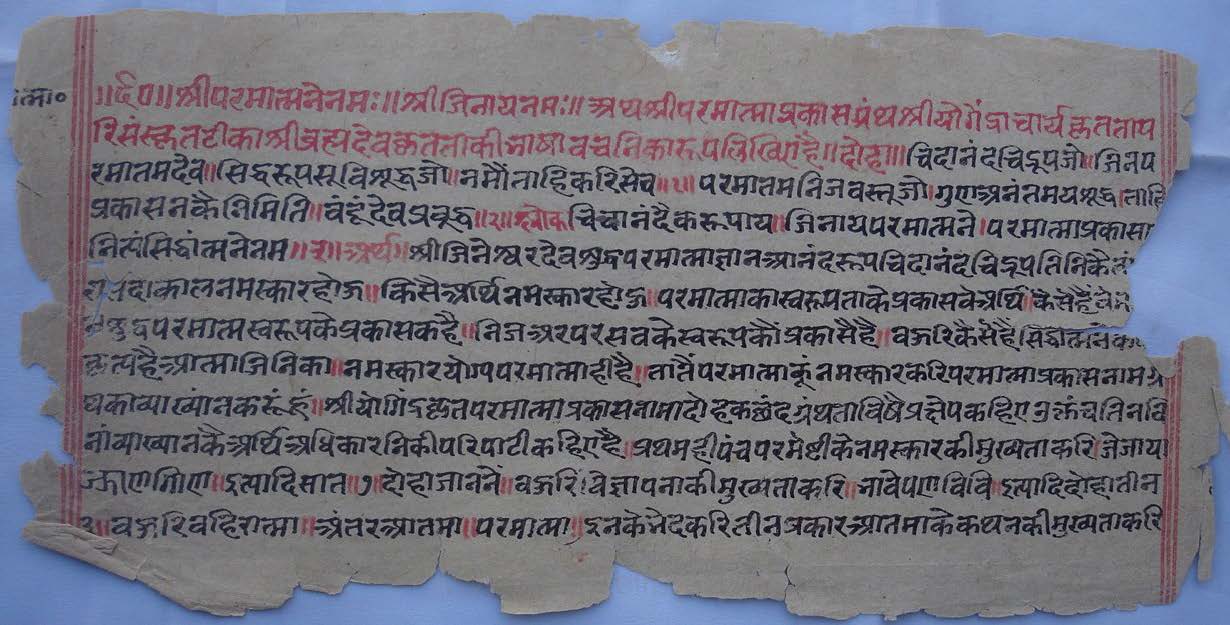 ॥ श्रीपरमात्मनेनमः॥ श्रीजिनायनमः॥ अथश्रीपरमात्माप्रकासग्रंथश्रीयोगेंद्राचार्यकृतताप
रिसंस्कृतटीकाश्रीब्रह्मदेवकृतताकीभाषावचनिकारूपलिखिएहै॥ दोहा॥ चिदानंदचिद्रूपजो॥ जिनप
रमातमदेव॥ सिद्धरूपसुविशुद्धजो॥ नमौंताहिकरिसेव॥१॥ परमातमनिजवस्तुजो॥ गुणअनंतमयशुद्ध॥ ताहि
प्रकासनकैनिमिति॥ वंदूंदेवप्रबुद्ध॥२॥ श्लोक॥ चिदानंदैकरूपाय॥ जिनायपरमात्मने॥ परमात्माप्रकासा
नित्यंसिद्धात्मनेनम॥ अर्थ॥ श्रीजिनेश्वरदेवशुद्धपरमात्माज्ञानआनंदरूपचिदानंदचिद्रूपतिनिकैतां
कालनमस्कारहोऊ॥ किसैअर्थिनमस्कारहोऊ॥ परमात्माकास्वरूपताकेप्रकासवेअर्थि॥ कैसेहैंवे
परमात्मस्वरूपकेप्रकासकहै॥ निजअरपरसबकेस्वरूपकौंप्रकासैहै॥ बऊरिकैसैहै॥
कृत्यहैआत्माजिनिका॥ नमस्कारयोग्यपरमात्माहीहै॥ तातैंपरमात्माकूंनमस्कारकरिपरमात्माप्रकासनामग्रं
थकाव्याख्यांनकरूंहूं॥ श्रीयोगिंद्रकृतपरमात्माप्रकासनामादोहकछंदग्रंथताविषैप्रक्षेपकहिए
नांव्याख्यानकैअर्थिअधिकारनिकीपरिपाटीकहिएहै॥ प्रथमहीपंचपरमेष्टीकेनमस्कारकीमुख्यताकरि॥ जेजाया
इत्यादिसात॥७॥ दोहाजाननें॥ बऊरि॥ विज्ञापनाकीमुख्यताकरि॥ इत्यादिदोहातीन
३॥ बऊरिबहिरात्मा॥ अंतरआतमा॥ परमात्मा॥ इनकेभेदकरितीनप्रकारआतमाकेकथनकीमुख्यताकरि